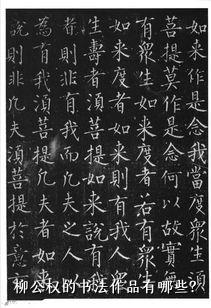 如来作是念我當度衆生湏
菩提莫作是念何以故實無
有衆生如来度者若有衆生
如来度者如来則有我人衆
生壽者湏菩提如来說有我
者則非有我而凡夫之人以
為有我湏菩提凡夫者如来
說則非凡夫湏菩提於意云
柳公权的书法作品有哪些?